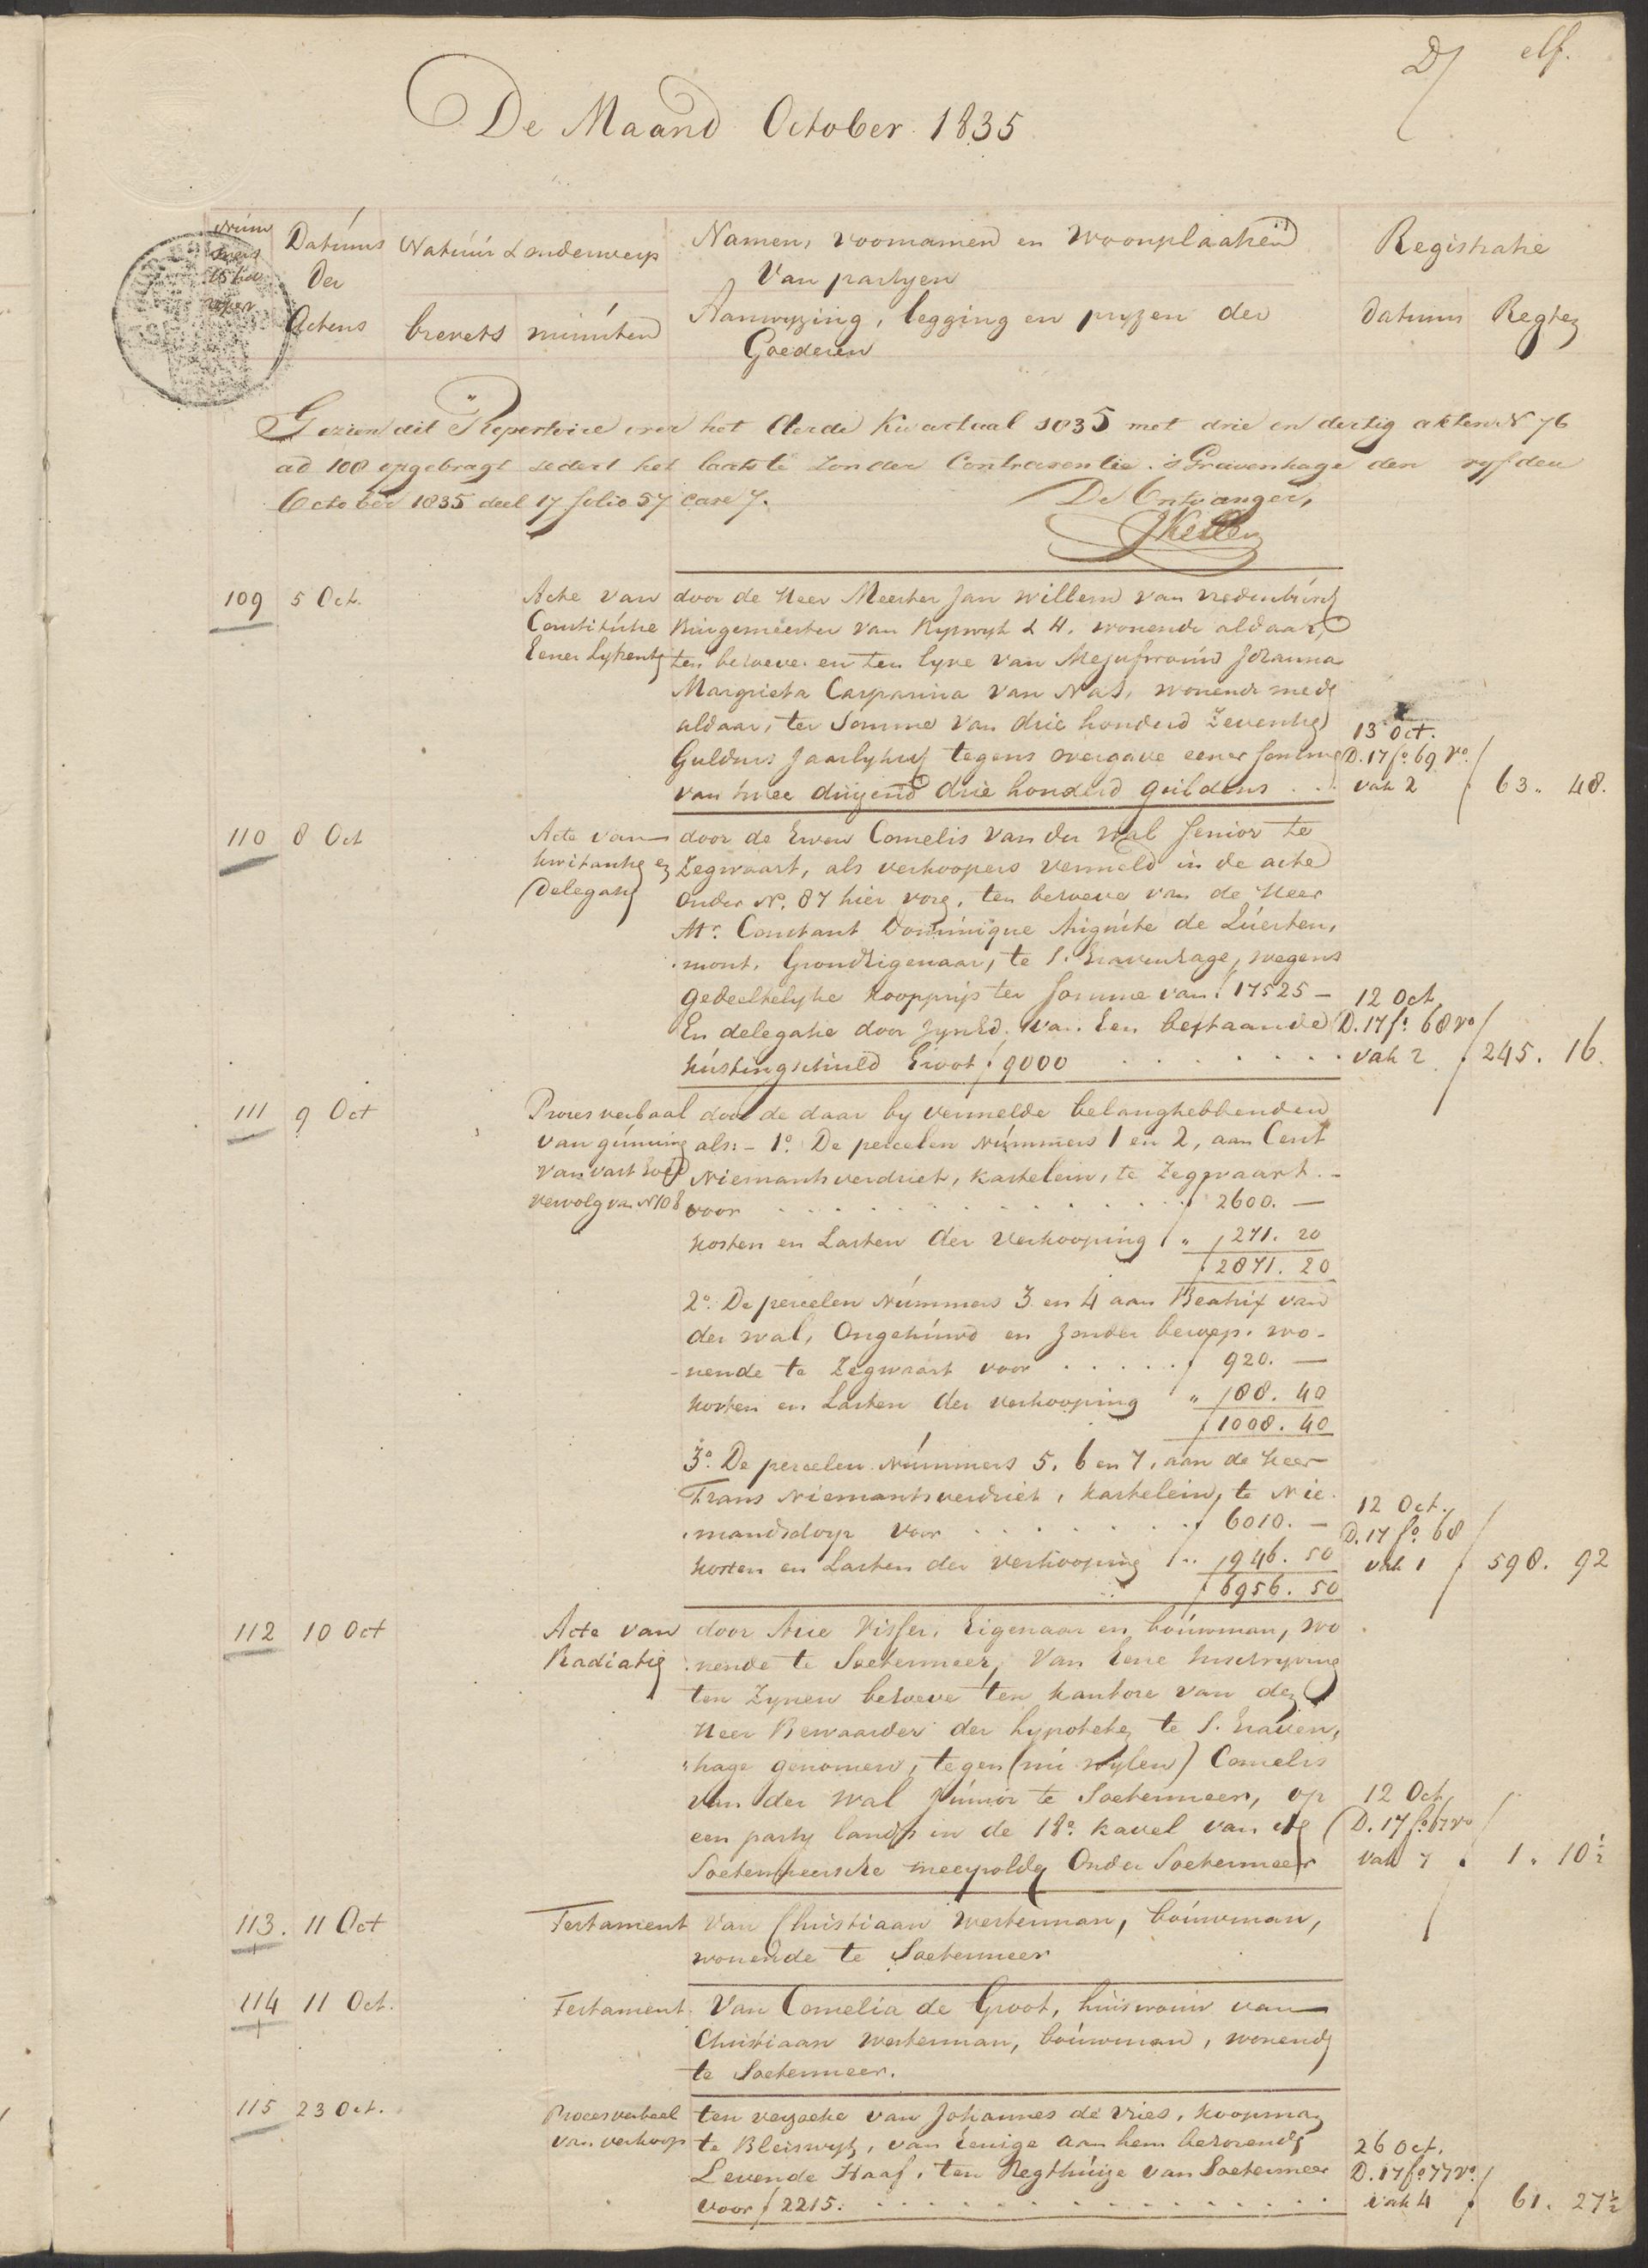 D/ elf.
De Maand October 1835
Num
mers
Datums
der
Actens
Natuur & onderwerp
brevets minuten
Namen, voornamen en Woonplaatsen
Van partyen
Aanwyzing, legging en pryzen der
Goederen
Registratie
datums Regten
Gezien dit Repertoire over het derde Kwartaal 1835 met drie en dertig akten N 76
ad 108 opgebragt sedert het laatste zonder Contraventie. 's Gravenhage den vyfden
October 1835 deel 17 folio 57 case 7.
De Ontvanger,
109 5 Oct.
Acte van
Constitutie
Eener Lyfrente
door de Heer Meester Jan Willem van Vredenburch
Burgemeester van Ryswyk & H. wonende aldaar,
ten behoeve en ten lyve van Mejufvrouw Johanna
Margrieta Casparina van Nas, wonende mede
aldaar, ter Somme van drie honderd Zeventig
Guldens Jaarlyks tegens overgave eener somme
van twee duizend drie honderd guldens . . .
13 Oct.
D. 17 fo. 69 vo.
vak 2
63 " 48.
110 8 Oct
Acte van
kwitantie en
Delegatie
door de Erven Cornelis van der Wal Senior te
Zegwaart, als verkoopers vermeld in de acte
onder No. 87 hier vore, ten behoeve van de Heer
Mr. Constant Dominique Auguste de Questen,
mont, Grondeigenaar, te S. Gravenhage, wegens
gedeeltelyke koopprijs ter somme van f 17525 -
En delegatie door ZynEd. van Een bestaande
kustingschuld Groot f 9000 . . . . . . .
12 Oct.
D. 17 fo. 68 vo
vak 2
f 245. 16.
111 9 Oct
Proces verbaal
van gunning
van vast Goed
vervolg van N 108
door de daar by vermelde belanghebbenden
als: - 1o. De perceelen Nummers 1 en 2, aan Cent
Niemantsverdriet, kastelein, te Zegwaart. -
voor . . . . . . . . . . . . f 2600. —
kosten en Lasten der Verkooping " f 271. 20
f 2871. 20
2o. De perceelen Nummers 3 en 4 aan Beatrix van
der Wal, Ongehuwd en zonder beroep. wo-
-nende te Zegwaart voor . . . . . f 920. —
kosten en Lasten der verkooping " f 88. 40
f 1008. 40
3o. De perceelen Nummers 5. 6 en 7, aan de Heer
Frans Niemantsverdriet, kastelein, te Nie-
mandsdorp voor . . . . . . . f 6010. —
kosten en Lasten der verkooping " f 946. 50
f 6956. 50
12 Oct.
D. 17 fo. 68
vak 1
f 598. 92
112 10 Oct
Acte van
Radiatie
door Arie Visser, Eigenaar en bouwman, wo
nende te Soetermeer, Van Eene Inschryving
ten Zynen behoeve ten kantore van den
Heer Bewaarder der hypoteke te S. Graven,
"hage genomen, tegen (nu wylen) Cornelis
van der Wal Junior te Soetermeer, op
een party lands in de 18e kavel van de
Soetermeersche meerpolder Onder Soetermeer
12 Oct
D. 17 fo. 67 vo
vak 7
f 1. 10½
113. 11 Oct
Testament
van Christiaan Westerman, bouwman,
wonende te Soetermeer
114 11 Oct.
Testament.
Van Cornelia de Groot, huisvrouw van
Christiaan Westerman, bouwman, wonende
te Soetermeer.
115 23 Oct.
Proces verbaal
van verkoop
ten verzoeke van Johannes de Vries, koopman
te Bleiswyk, van Eenige aan hem behorende
Levende Haaf, ten Regthuize van Soetermeer
voor f 2215. . . . . . . . . . . . . .
26 Oct.
D. 17 fo 77 vo.
vak 4
f 61. 27½